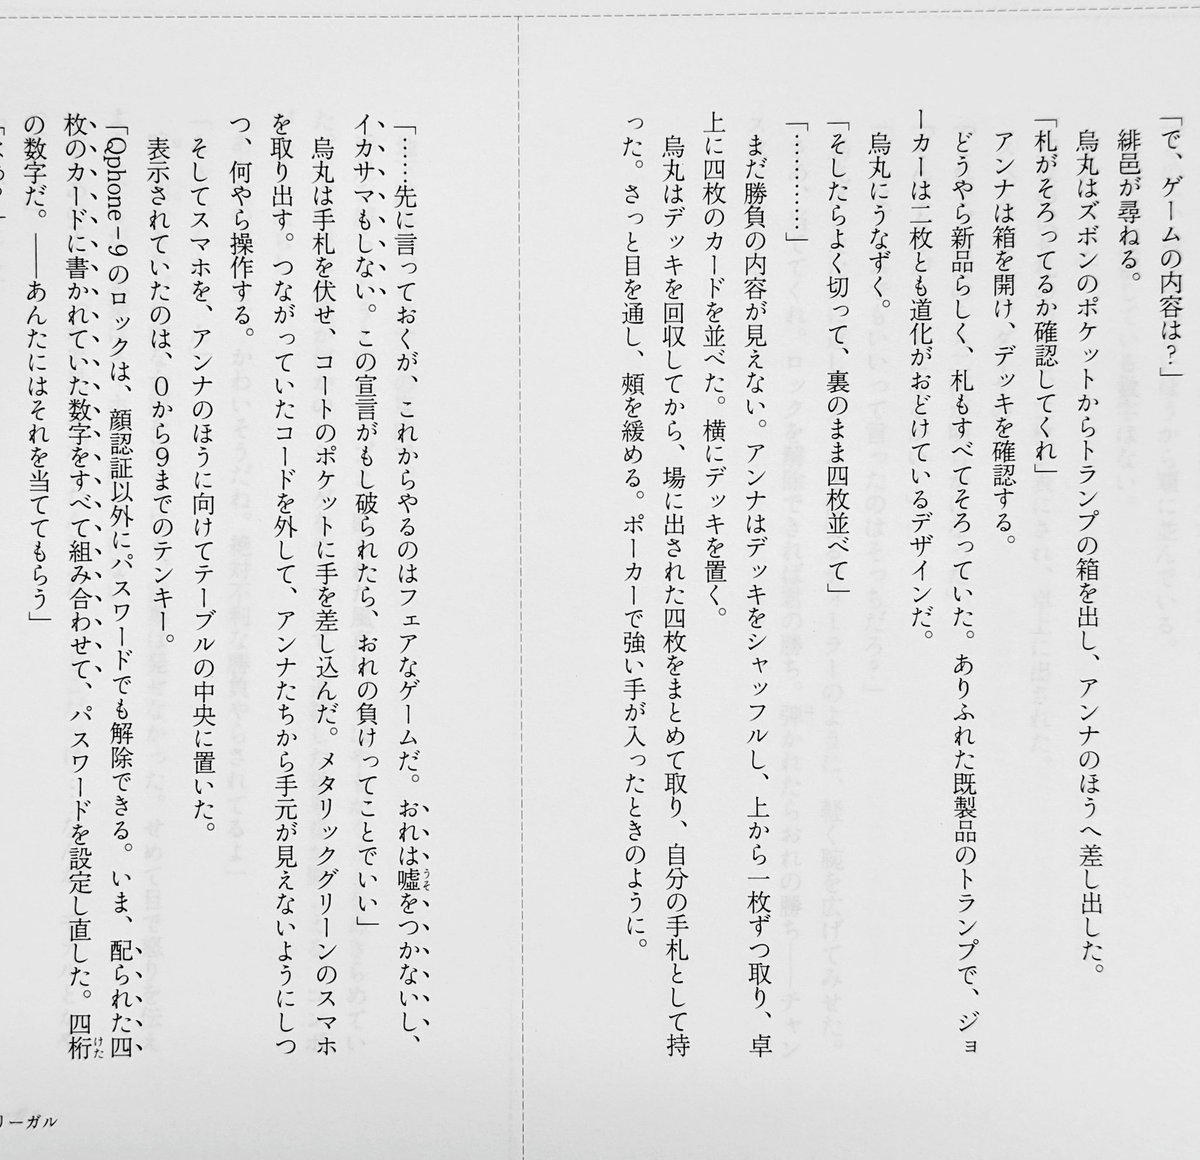 「で、ゲームの内容は？」
緋邑が尋ねる。
烏丸はズボンのポケットからトランプの箱を出し、アンナのほうへ差し出した。
「札がそろってるか確認してくれ」
アンナは箱を開け、デッキを確認する。
どうやら新品らしく、札もすべてそろっていた。ありふれた既製品のトランプで、ジョ
ーカーは二枚とも道化がおどけているデザインだ。
烏丸にうなずく。
「そしたらよく切って、裏のまま四枚並べて」
「…………」
まだ勝負の内容が見えない。アンナはデッキをシャッフルし、上から一枚ずつ取り、卓
上に四枚のカードを並べた。横にデッキを置く。
烏丸はデッキを回収してから、場に出された四枚をまとめて取り、自分の手札として持
った。さっと目を通し、頬を緩める。ポーカーで強い手が入ったときのように。
「……先に言っておくが、これからやるのはフェアなゲームだ。おれは嘘をつかないし、
イカサマもしない。この宣言がもし破られたら、おれの負けってことでいい」
烏丸は手札を伏せ、コートのポケットに手を差し込んだ。メタリックグリーンのスマホ
を取り出す。つながっていたコードを外して、アンナたちから手元が見えないようにしつ
つ、何やら操作する。
そしてスマホを、アンナのほうに向けてテーブルの中央に置いた。
表示されていたのは、0から9までのテンキー。
「Qphone-9のロックは、顔認証以外にパスワードでも解除できる。いま、配られた四
枚のカードに書かれていた数字をすべて組み合わせて、パスワードを設定し直した。四桁
の数字だ。――あんたにはそれを当ててもらう」
リーガル